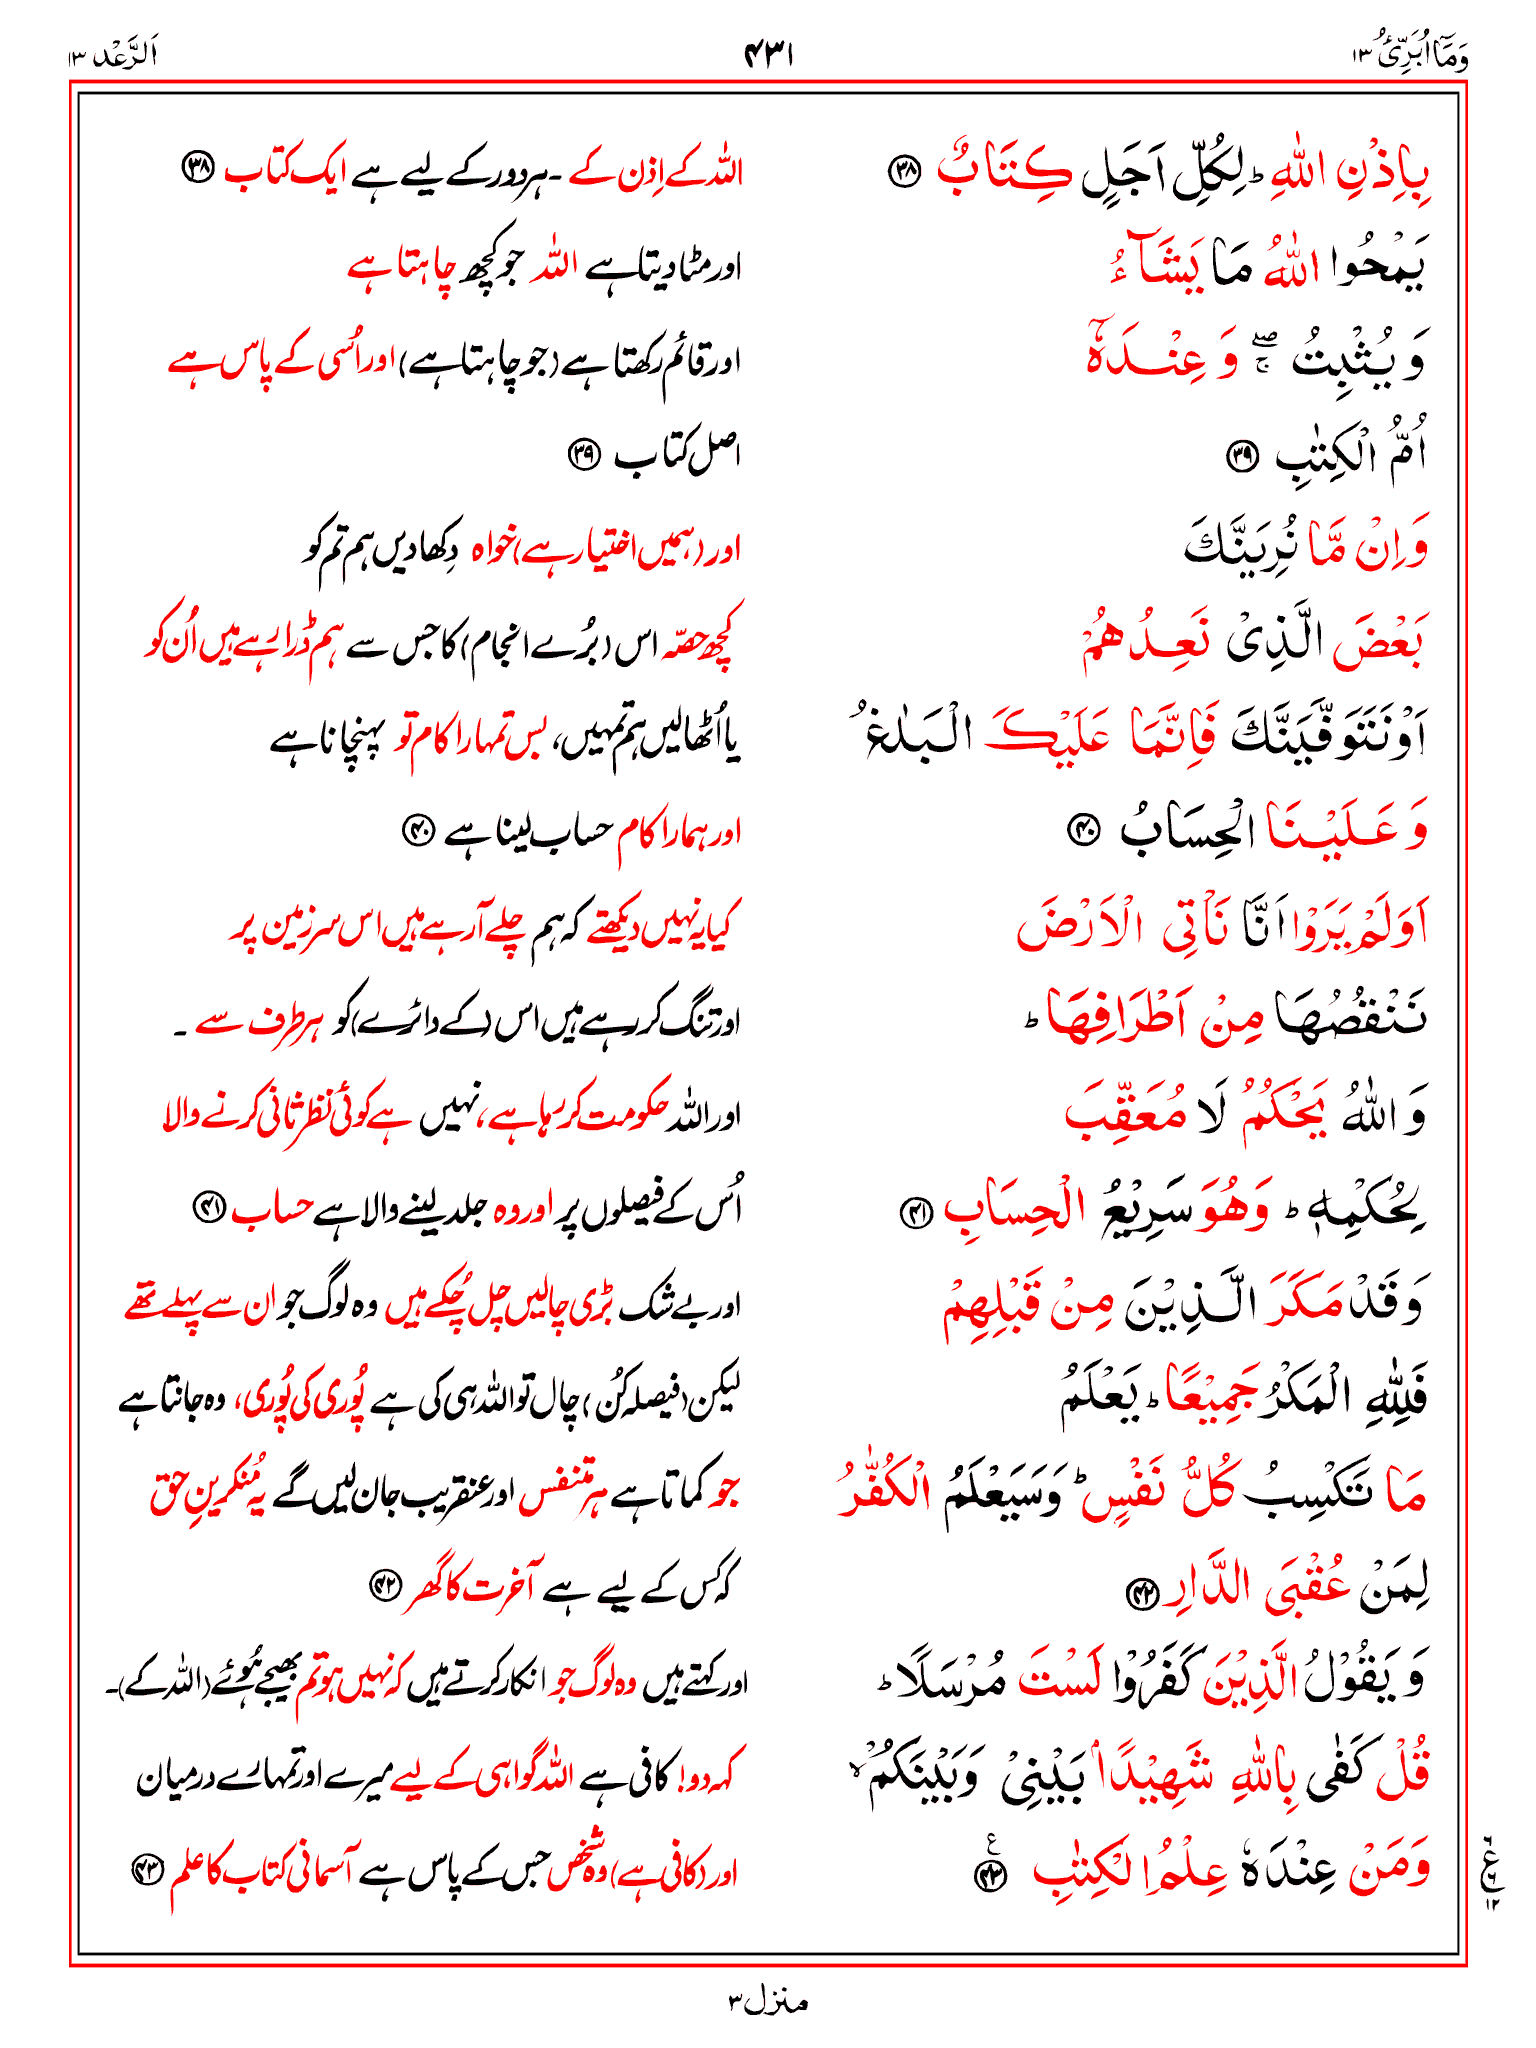 وَمَآ اُبَرِّئُ ۱۳
۴۳۱
اَلرَّعْد ۱۳
بِاِذْنِ اللّٰهِ ؕ لِكُلِّ اَجَلٍ كِتَابٌ ۳۸
اللہ کے اِذن کے ۔ ہر دور کے لیے ہے ایک کتاب ۳۸
يَمْحُوا اللّٰهُ مَا يَشَآءُ
اور مٹا دیتا ہے اللہ جو کچھ چاہتا ہے
وَيُثْبِتُ ۖۚ وَعِنْدَهٗۤ
اور قائم رکھتا ہے (جو چاہتا ہے) اور اُسی کے پاس ہے
اُمُّ الْكِتٰبِ ۳۹
اصل کتاب ۳۹
وَاِنْ مَّا نُرِيَنَّكَ
اور (ہمیں اختیار ہے) خواہ دِکھا دیں ہم تم کو
بَعْضَ الَّذِىْ نَعِدُهُمْ
کچھ حصّہ اس (بُرے انجام) کا جس سے ہم ڈرا رہے ہیں اُن کو
اَوْ نَتَوَفَّيَنَّكَ فَاِنَّمَا عَلَيْكَ الْبَلٰغُ
یا اُٹھالیں ہم تمہیں، بس تمہارا کام تو پہنچانا ہے
وَعَلَيْنَا الْحِسَابُ ۴۰
اور ہمارا کام حساب لینا ہے ۴۰
اَوَلَمْ يَرَوْا اَنَّا نَاْتِى الْاَرْضَ
کیا یہ نہیں دیکھتے کہ ہم چلے آ رہے ہیں اس سرزمین پر
نَنْقُصُهَا مِنْ اَطْرَافِهَا ؕ
اور تنگ کر رہے ہیں اس (کے دائرے) کو ہر طرف سے ۔
وَاللّٰهُ يَحْكُمُ لَا مُعَقِّبَ
اور اللہ حکومت کر رہا ہے، نہیں ہے کوئی نظر ثانی کرنے والا
لِحُكْمِهٖ ؕ وَهُوَ سَرِيْعُ الْحِسَابِ ۴۱
اُس کے فیصلوں پر اور وہ جلد لینے والا ہے حساب ۴۱
وَقَدْ مَكَرَ الَّذِيْنَ مِنْ قَبْلِهِمْ
اور بے شک بڑی چالیں چل چُکے ہیں وہ لوگ جو ان سے پہلے تھے
فَلِلّٰهِ الْمَكْرُ جَمِيْعًا ؕ يَعْلَمُ
لیکن (فیصلہ کُن) چال تو اللہ ہی کی ہے پُوری کی پُوری، وہ جانتا ہے
مَا تَكْسِبُ كُلُّ نَفْسٍ ؕ وَسَيَعْلَمُ الْكُفّٰرُ
جو کماتا ہے ہر متنفس اور عنقریب جان لیں گے یہ مُنکرینِ حق
لِمَنْ عُقْبَى الدَّارِ ۴۲
کہ کس کے لیے ہے آخرت کا گھر ۴۲
وَيَقُوْلُ الَّذِيْنَ كَفَرُوْا لَسْتَ مُرْسَلًا ؕ
اور کہتے ہیں وہ لوگ جو انکار کرتے ہیں کہ نہیں ہو تم بھیجے ہُوئے (اللہ کے)۔
قُلْ كَفٰى بِاللّٰهِ شَهِيْدًۢا بَيْنِىْ وَبَيْنَكُمْ ۙ
کہہ دو! کافی ہے اللہ گواہی کے لیے میرے اور تمہارے درمیان
وَمَنْ عِنْدَهٗ عِلْمُ الْكِتٰبِ ۴۳ ع
اور (کافی ہے) وہ شخص جس کے پاس ہے آسمانی کتاب کا علم ۴۳
۶ ع ۶ ۱۲
منزل ۳